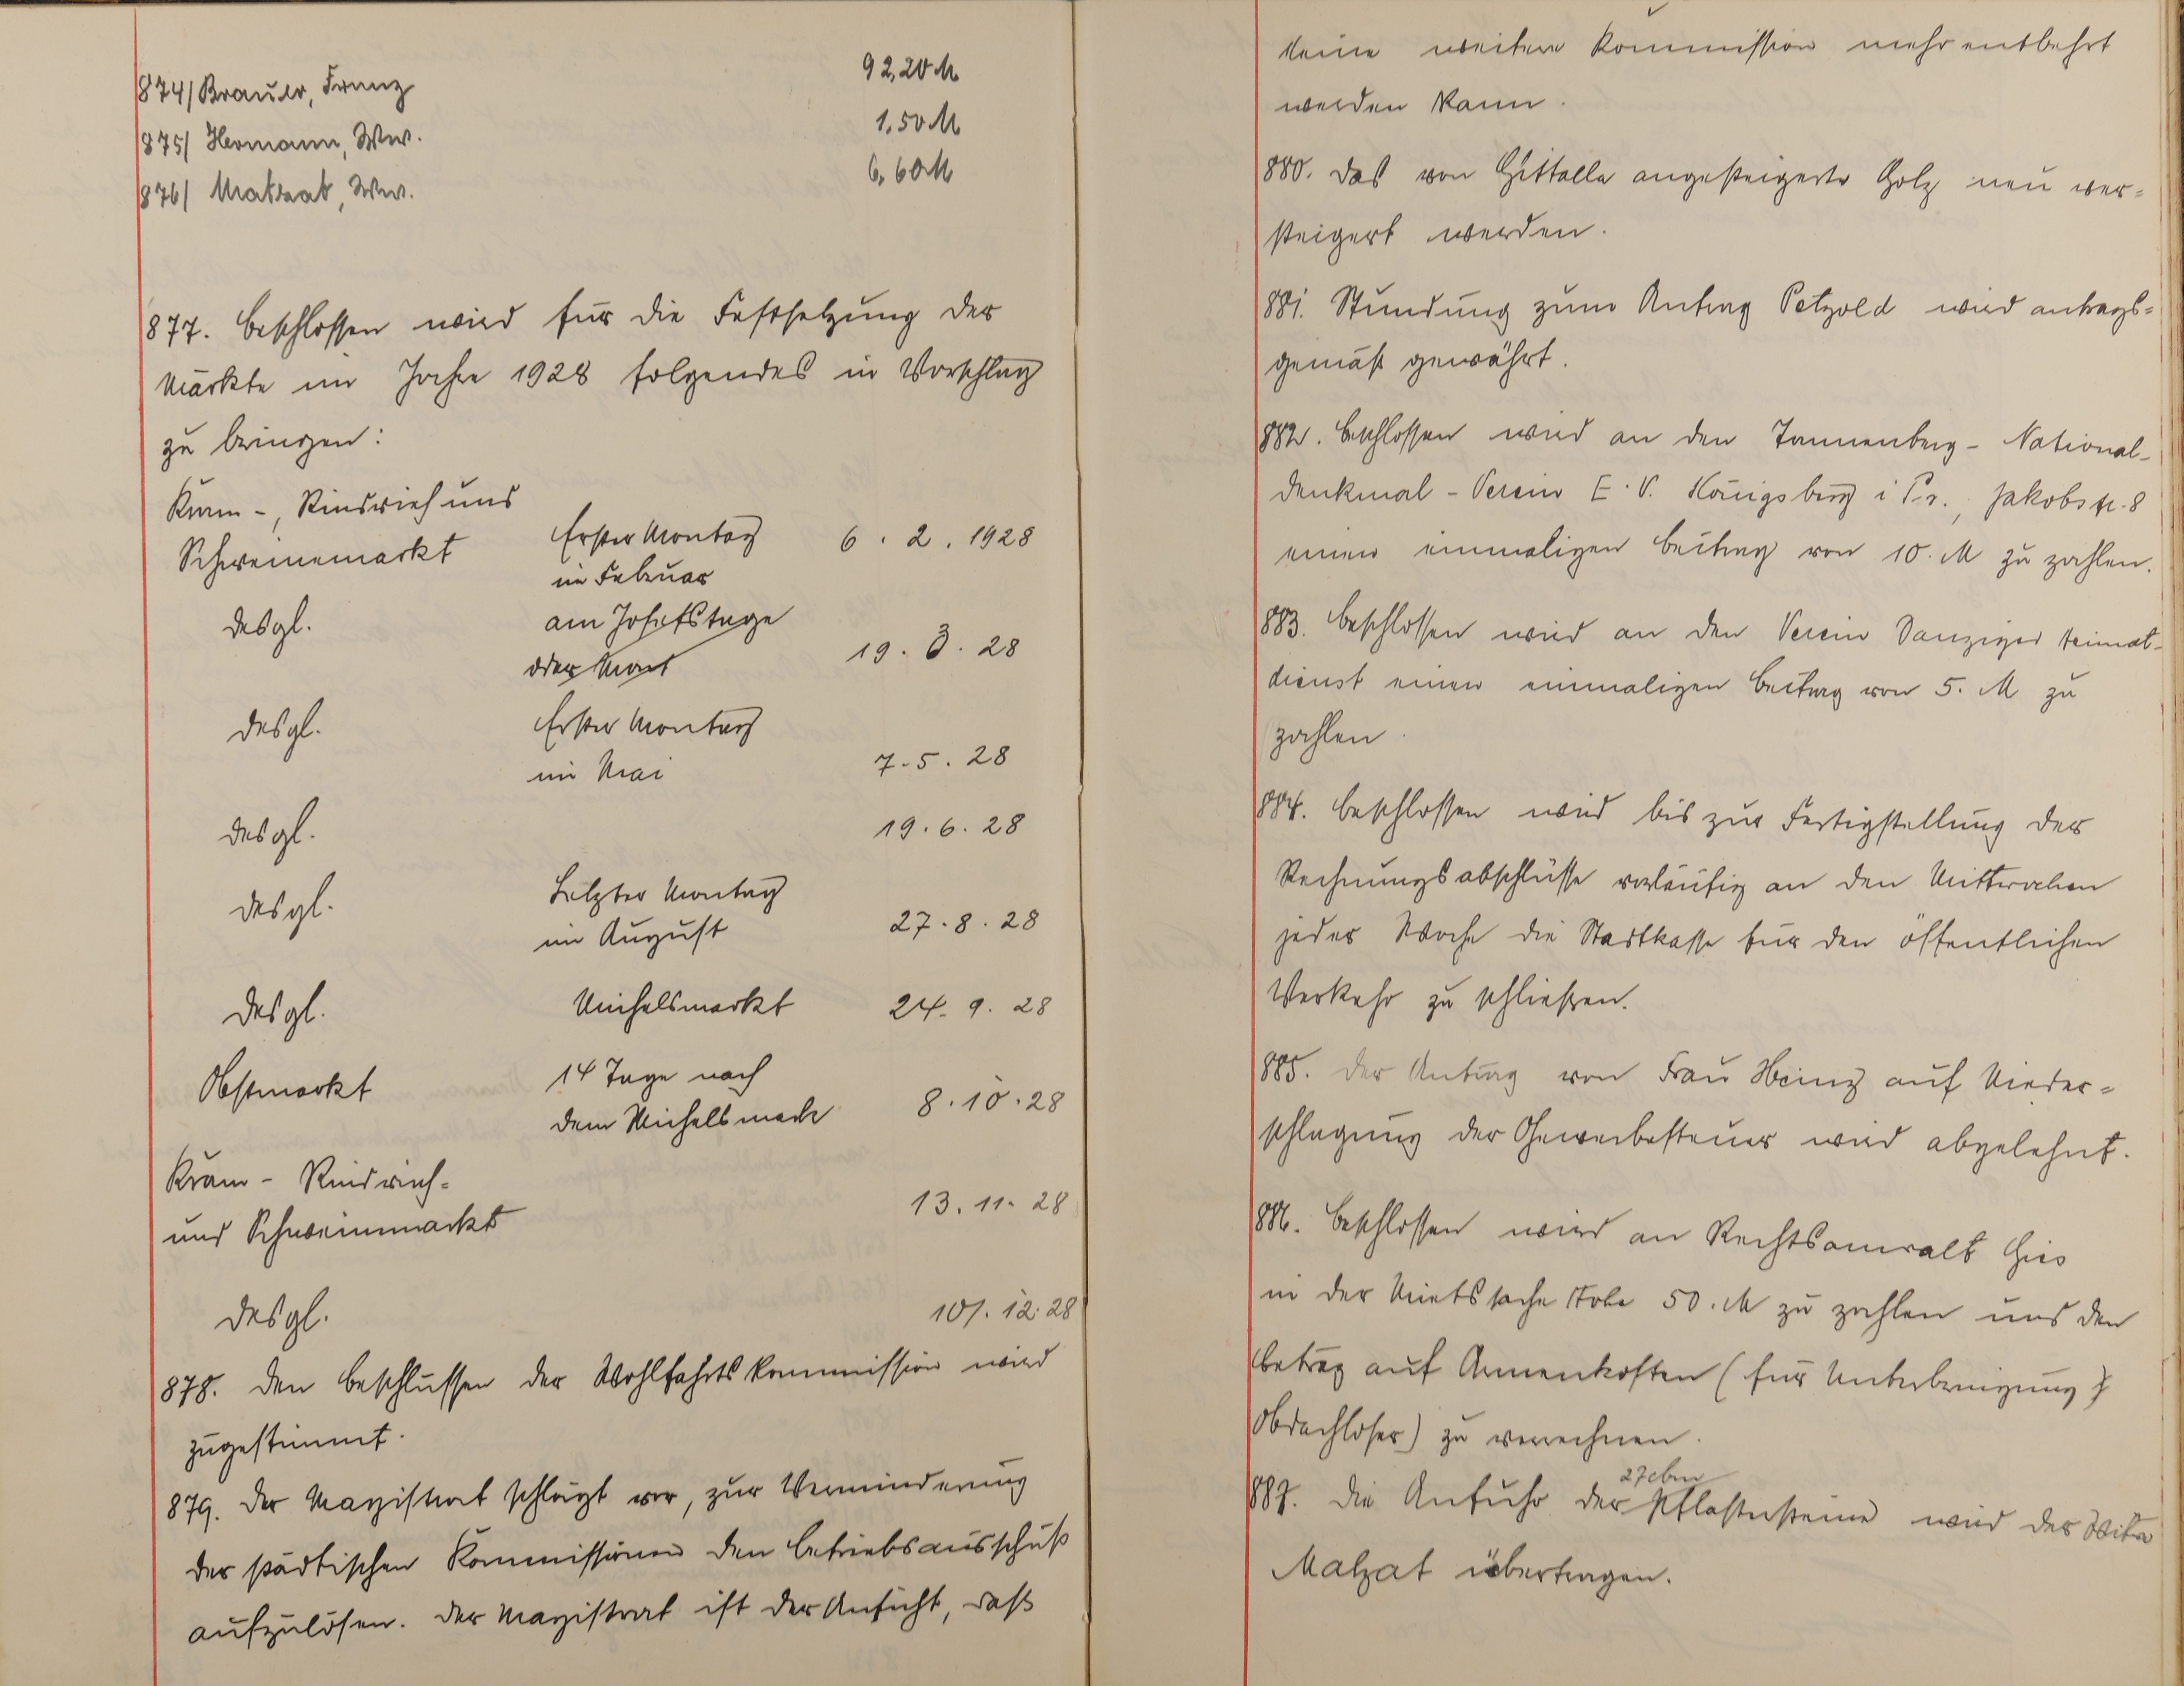 874/ Brauer, Franz 92,20 M
875/ Hermann, Ww. 1.50 M
876/ Malzat, Ww. 6,60 M
877. Beschlossen wird für die Festsetzung der
Märkte im Jahre 1928 folgendes in Vorschlag
zu bringen:
Kram-, Rindvieh und
Schweinemarkt Erster Montag 6. 2. 1928
im Februar
desgl. am Josefstage
oder Mont 19. 3. 28
desgl. Erster Montag
im Mai 7. 5. 28
desgl. 19. 6. 28
desgl. Letzter Montag
im August 27. 8. 28
desgl. Michelsmarkt 24. 9. 28
Obstmarkt 14 Tage nach
dem Michelsmarkt 8. 10. 28
Kram- Rindvieh-
und Schweinmarkt 13. 11. 28
desgl. 12. 28
878. Den Beschlussen der Wohlfahrtskommission wird
zugestimmt.
879. Der Magistrat schlägt vor, zur Verminderung
der städtischen Kommissionen den Betriebsausschuß
aufzulösen. Der Magistrat ist der Ansicht, daß
keine weitere Kommission mehr entbehrt
werden kann.
880. Das von Gittalla angesteigerte Holz neu ver-
steigert werden.
881. Stundung zum Antrag Petzold wird antrags-
gemäß gewährt.
882. Beschlossen wird an den Tannenberg-National-
denkmal-Verein E. V. Königsberg i Pr., Jakobstr. 8
einen einmaligen Beitrag von 10. M zu zahlen.
883. Beschlossen wird an den Verein Danziger Heimat-
dienst einen einmaligen Beitrag von 5. M zu
zahlen.
884. Beschlossen wird bis zur Fertigstellung der
Rechnungsabschlüsse vorläufig an den Mittwochen
jeder Woche die Stadtkasse für den öffentlichen
Verkehr zu schließen.
885. Der Antrag von Frau Heinz auf Nieder-
schlagung der Gewerbesteuer wird abgelehnt.
886. Beschlossen wird an Rechtsanwalt Gies
in der Mietssache 50. M zu zahlen und den
Betrag auf Armenkosten (für Unterbringung
Obdachloser) zu verrechnen.
27 cbm
887. Die Anfuhr der Pflastersteine wird der Witwe
Malzat übertragen.